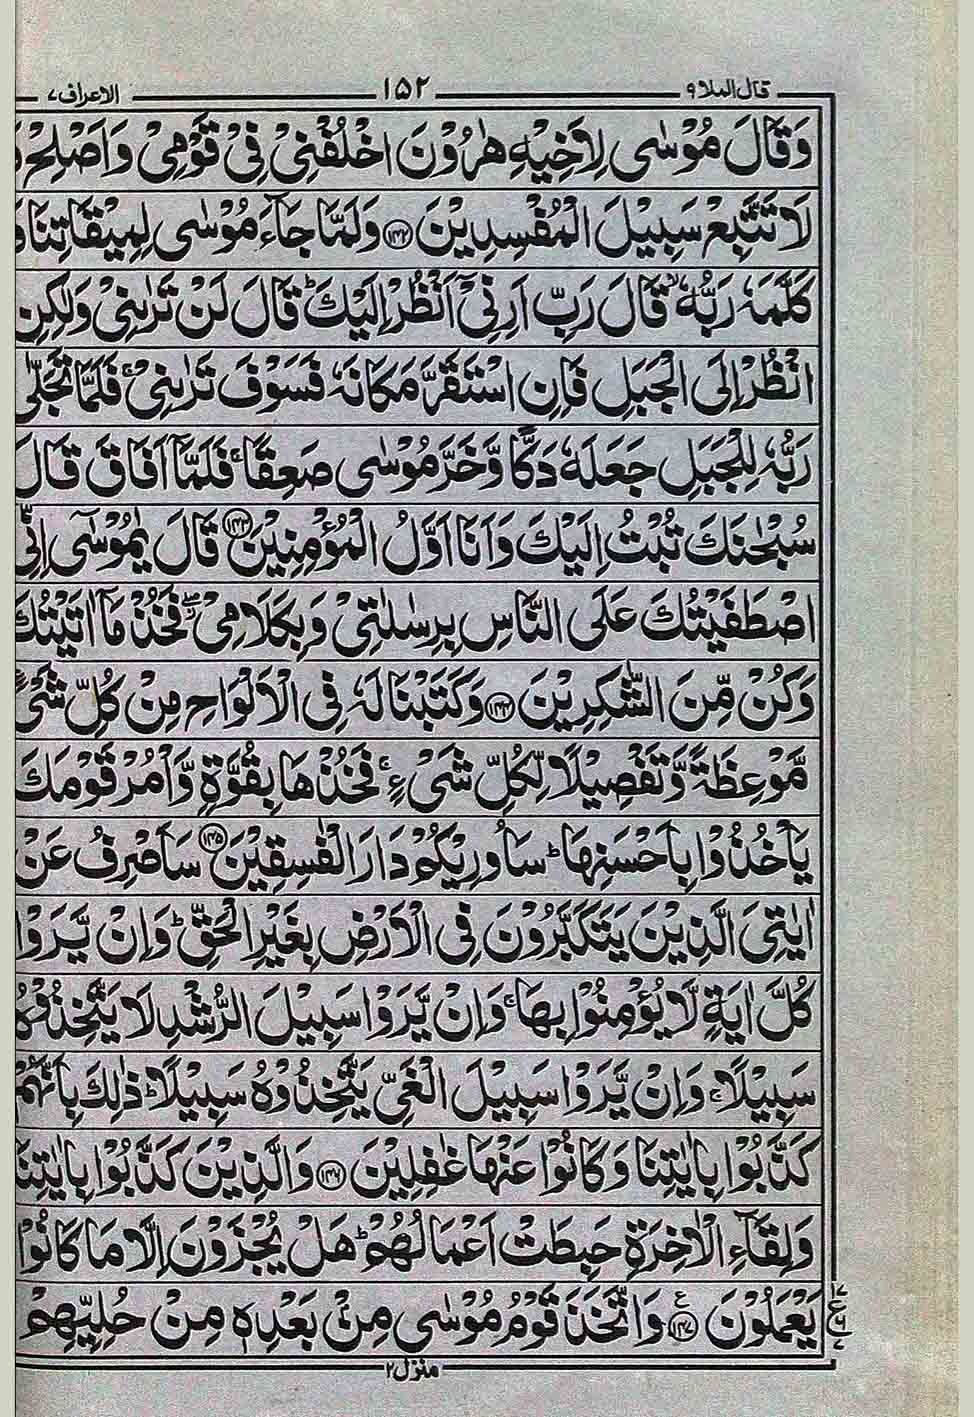 قال الملا ٩ ١٥٢ الاعراف ٧
وَقَالَ مُوْسٰى لِاَخِيْهِ هٰرُوْنَ اخْلُفْنِيْ فِيْ قَوْمِيْ وَاَصْلِحْ
لَا تَتَّبِعْ سَبِيْلَ الْمُفْسِدِيْنَ ۝١٤٢ وَلَمَّا جَآءَ مُوْسٰى لِمِيْقَاتِنَا وَ
كَلَّمَهٗ رَبُّهٗ ۙ قَالَ رَبِّ اَرِنِيْٓ اَنْظُرْ اِلَيْكَ ؕ قَالَ لَنْ تَرٰىنِيْ وَلٰكِنِ
انْظُرْ اِلَى الْجَبَلِ فَاِنِ اسْتَقَرَّ مَكَانَهٗ فَسَوْفَ تَرٰىنِيْ ۚ فَلَمَّا تَجَلّٰى
رَبُّهٗ لِلْجَبَلِ جَعَلَهٗ دَكًّا وَّخَرَّ مُوْسٰى صَعِقًا ۚ فَلَمَّآ اَفَاقَ قَالَ
سُبْحٰنَكَ تُبْتُ اِلَيْكَ وَاَنَا اَوَّلُ الْمُؤْمِنِيْنَ ۝١٤٣ قَالَ يٰمُوْسٰٓى اِنِّى
اصْطَفَيْتُكَ عَلَى النَّاسِ بِرِسٰلٰتِيْ وَبِكَلَامِيْ ۖ فَخُذْ مَآ اٰتَيْتُكَ
وَكُنْ مِّنَ الشّٰكِرِيْنَ ۝١٤٤ وَكَتَبْنَا لَهٗ فِى الْاَلْوَاحِ مِنْ كُلِّ شَيْءٍ
مَّوْعِظَةً وَّتَفْصِيْلًا لِّكُلِّ شَيْءٍ ۚ فَخُذْهَا بِقُوَّةٍ وَّاْمُرْ قَوْمَكَ
يَاْخُذُوْا بِاَحْسَنِهَا ؕ سَاُورِيْكُمْ دَارَ الْفٰسِقِيْنَ ۝١٤٥ سَاَصْرِفُ عَنْ
اٰيٰتِيَ الَّذِيْنَ يَتَكَبَّرُوْنَ فِى الْاَرْضِ بِغَيْرِ الْحَقِّ ؕ وَاِنْ يَّرَوْا
كُلَّ اٰيَةٍ لَّا يُؤْمِنُوْا بِهَا ۚ وَاِنْ يَّرَوْا سَبِيْلَ الرُّشْدِ لَا يَتَّخِذُوْهُ
سَبِيْلًا ۚ وَاِنْ يَّرَوْا سَبِيْلَ الْغَيِّ يَتَّخِذُوْهُ سَبِيْلًا ؕ ذٰلِكَ بِاَنَّهُمْ
كَذَّبُوْا بِاٰيٰتِنَا وَكَانُوْا عَنْهَا غٰفِلِيْنَ ۝١٤٦ وَالَّذِيْنَ كَذَّبُوْا بِاٰيٰتِنَا
وَلِقَآءِ الْاٰخِرَةِ حَبِطَتْ اَعْمَالُهُمْ ؕ هَلْ يُجْزَوْنَ اِلَّا مَا كَانُوْا
يَعْمَلُوْنَ ۝١٤٧ ع وَاتَّخَذَ قَوْمُ مُوْسٰى مِنْۢ بَعْدِهٖ مِنْ حُلِيِّهِمْ
منزل ٢